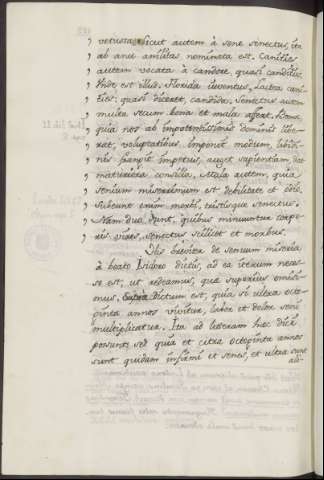 „ vetusta, sicut autem à sene senectus, ita
„ ab anu anilitas nominata est. Canities
„ autem vocata à candore, quasi candities.
„ Unde est illud. Florida iuventus, lactea cani-
„ ties; quasi diceret, candida. Senectus autem
„ multa secum bona et mala affert. Bona,
„ quia nos ab impotentissimis dominis libe-
„ rat, voluptatibus imponit modum, libidi-
„ nis frangit impetus, auget sapientiam, dat
„ maturiora consilia. Mala autem, quia
„ senium miserrimum est debilitate et odio.
„ Subeunt enim morbi, tristisque senectus.
„ Nam duo sunt, quibus minuuntur corpo-
„ ris vires, senectus scilicet et morbus.
His breviter de senum miseria
à beato Isidoro dictis, ad ea iterum neces-
se est, ut redeamus, quæ superius omisi-
mus. Supra dictum est, quia si ultra octo-
ginta annos vivitur, labor et dolor senis
multiplicatur. Ita ad literam hæc dici
possunt, sed quia et citra octoginta annos
sunt quidam infirmi et senes, et ultra sunt
ali-